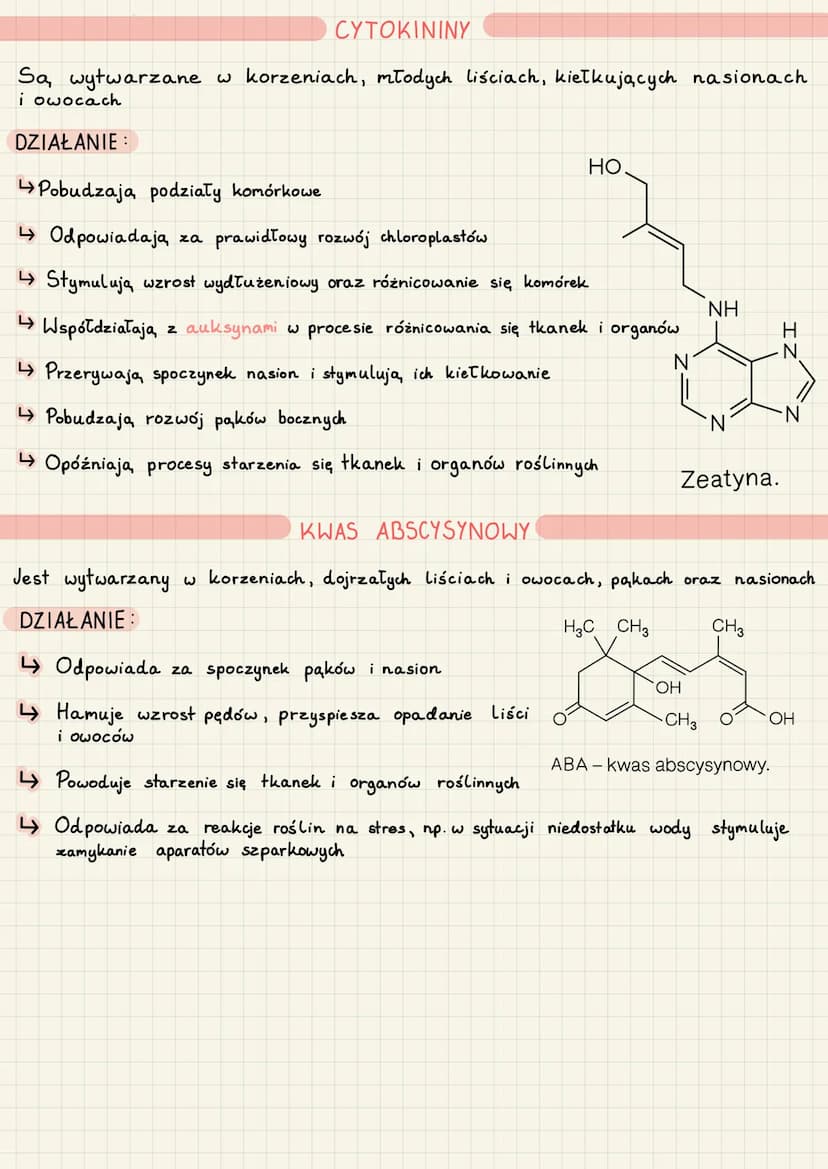 CYTOKININY
Są wytwarzane w korzeniach, młodych liściach, kiełkujących nasionach
i owocach
DZIAŁANIE:
↳ Pobudzają podziały komórkowe
↳ Odpowiadają za prawidłowy rozwój chloroplastów
↳ Stymulują wzrost wydłużeniowy oraz różnicowanie się komórek
↳ Współdziałają z auksynami w procesie różnicowania się tkanek i organów
↳ Przerywają spoczynek nasion i stymulują ich kiełkowanie
↳ Pobudzają rozwój pąków bocznych
↳ Opóźniają procesy starzenia się tkanek i organów roślinnych
HO
NH
H
N
N
N
N
Zeatyna.
KWAS ABSCYSYNOWY
Jest wytwarzany w korzeniach, dojrzałych liściach i owocach, pąkach oraz nasionach
DZIAŁANIE:
↳ Odpowiada za spoczynek pąków i nasion
↳ Hamuje wzrost pędów, przyspiesza opadanie liści
i owoców
↳ Powoduje starzenie się tkanek i organów roślinnych
↳ Odpowiada za reakcje roślin na stres, np. w sytuacji niedostatku wody stymuluje
zamykanie aparatów szparkowych
H₃C CH₃ CH₃
OH
O CH₃ O OH
ABA – kwas abscysynowy.